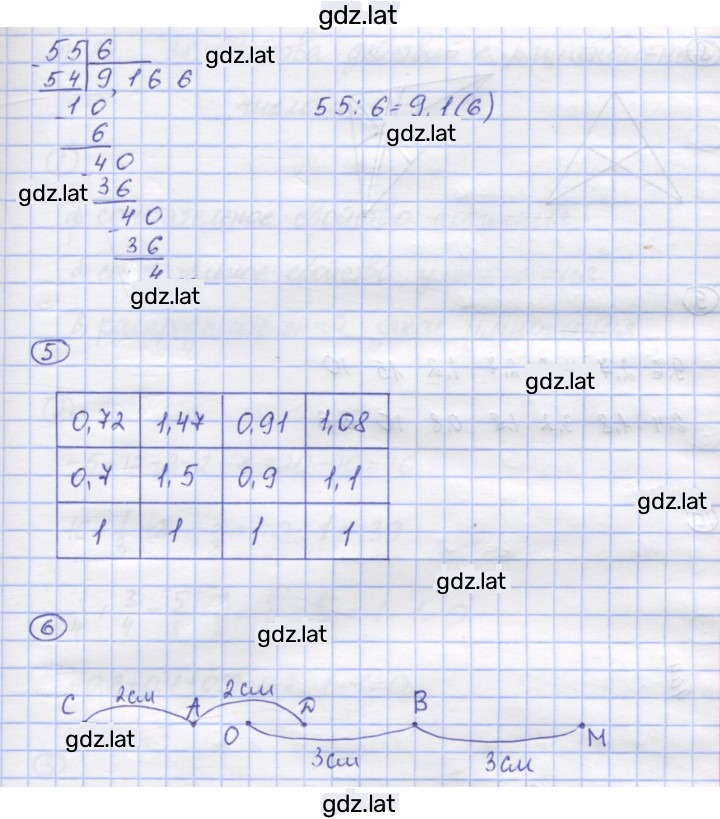 gdz.lat
55 6
gdz.lat
54 9,166
10
55:6=9,1(6)
6
gdz.lat
40
gdz.lat
36
40
36
4
gdz.lat
5
gdz.lat
0,72 1,47 0,91 1,08
0,7 1,5 0,9 1,1
gdz.lat
1 1 1 1
gdz.lat
6
gdz.lat
2см 2см
C A D B
gdz.lat
O M
3см 3см
gdz.lat